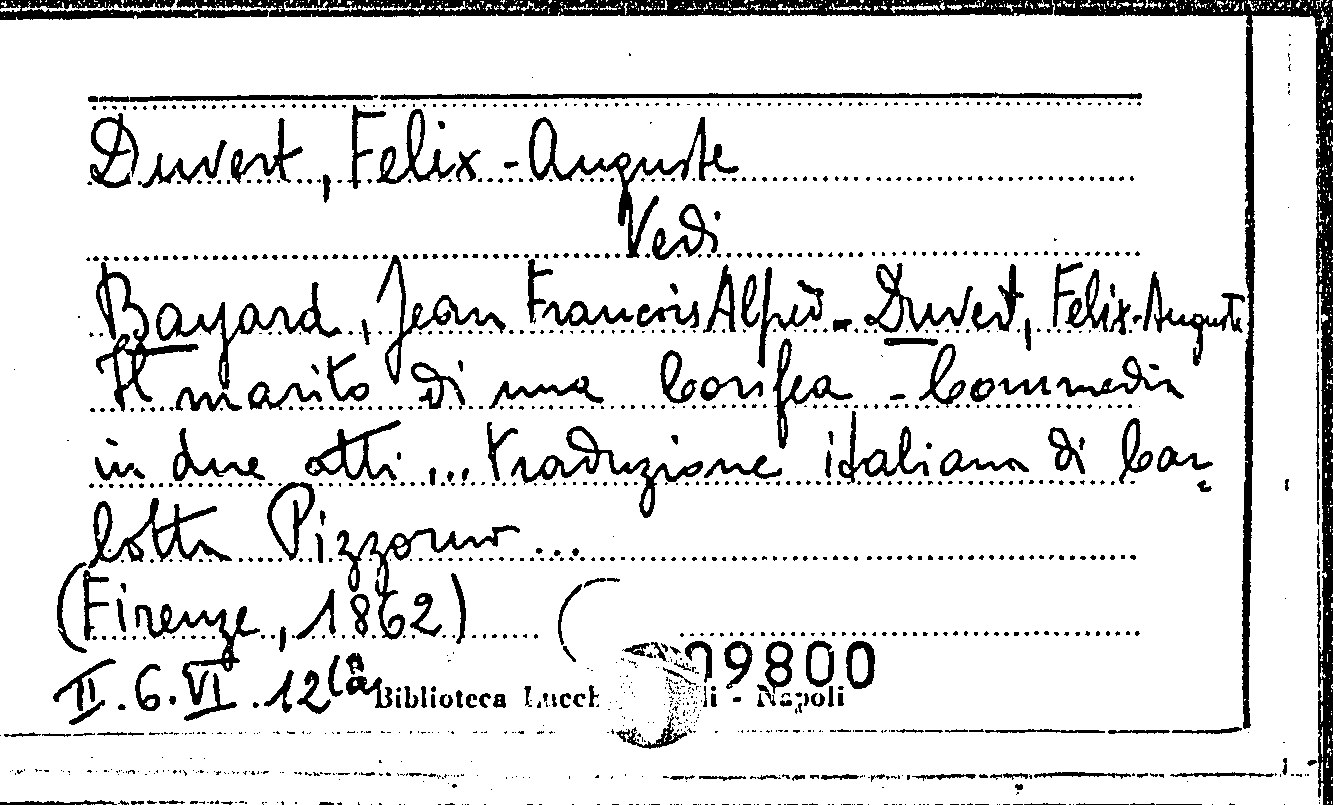 Duvert, Felix-Auguste
Vedi
Bayard, Jean Francois Alfred - Duvert, Felix-Auguste
Il marito di una Corifea - Commedia
in due atti ... traduzione italiana di Car-
lotta Pizzorno ...
(Firenze, 1862)
II.6.VI.12(a
09800
Biblioteca Lucch li - Napoli